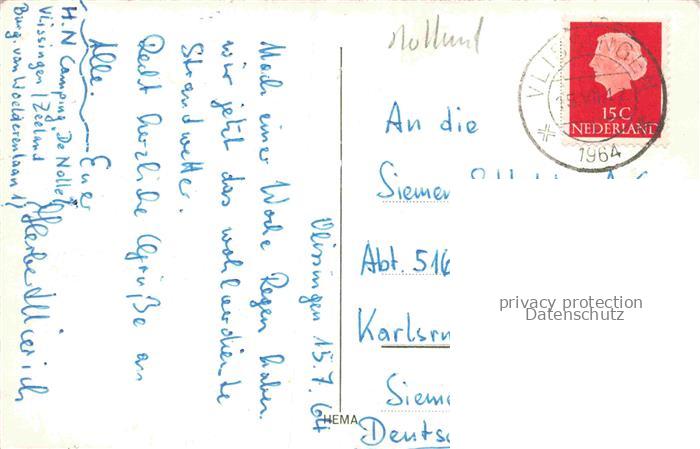 Holland
VLISSINGEN
1964
15C
NEDERLAND
Vlissingen 15.7.64
Nach einer Woche Regen haben
wir jetzt das wohlverdiente
Strandwetter.
Recht herzliche Grüße an
Alle. Euer
H.N Camping "De Nolle"
Vlissingen / Zeeland
Burg. van Woelderenlaan 1
An die
Siemen
Abt. 516
Karlsru
Sieme
Deutsc
HEMA
privacy protection
Datenschutz